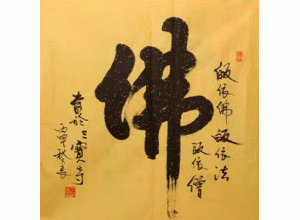 皈依佛皈依法
皈依僧
佛
於三寶寺
丙申秋